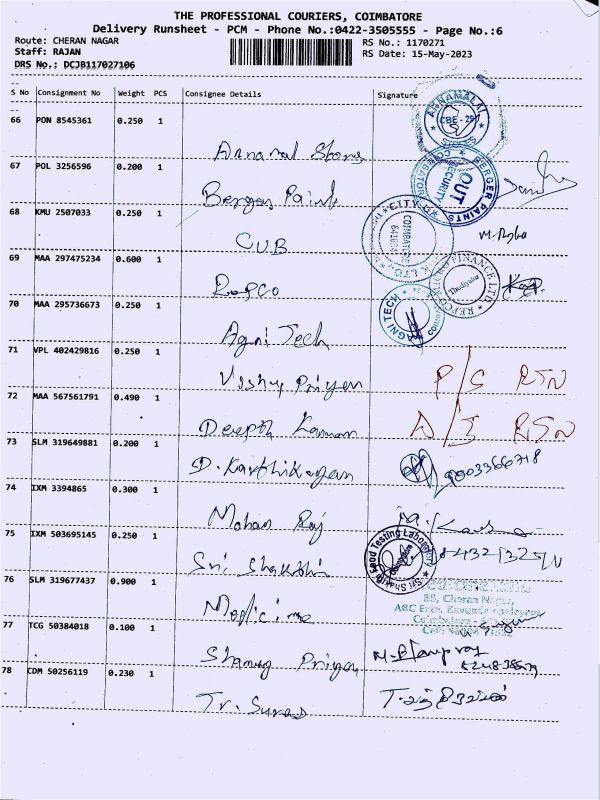 THE PROFESSIONAL COURIERS, COIMBATORE
Delivery Runsheet - PCM - Phone No.:0422-3505555 - Page No.:6
Route: CHERAN NAGAR
RS No.: 1170271
Staff: RAJAN
RS Date: 15-May-2023
DRS No.: DCJB117027106
S No Consignment No Weight PCS Consignee Details Signature
66 PON 8545361 0.250 1
ANNAMALAI
CBE - 29
STORES
Annamal Stores
67 POL 3256596 0.200 1
BERGER PAINTS
COIMBATORE
OUT
SECURITY
Berger Paint
68 KMU 2507033 0.250 1
CITY
COIMBATORE
CUB
69 MAA 297475234 0.600 1
REPCO FINANCE LTD.
Repco
70 MAA 295736673 0.250 1
AGNI TECH
Agni Tech
71 VPL 402429816 0.250 1
Vishnu Priyan P/S RTN
72 MAA 567561791 0.490 1
Deepth Kannan RTN
73 SLM 319649881 0.200 1
D. Karthikeyan 9003366718
74 IXM 3394865 0.300 1
Mohan Raj
75 IXM 503695145 0.250 1
Sri Shakthi Food Testing Laboratory
Sri Shakthi
76 SLM 319677437 0.900 1
88, Cheran Nagar,
Coimbatore
Medicine
77 TCG 50384018 0.100 1
Shanmug Priyan
78 CDM 50256119 0.230 1
Tr. Sures